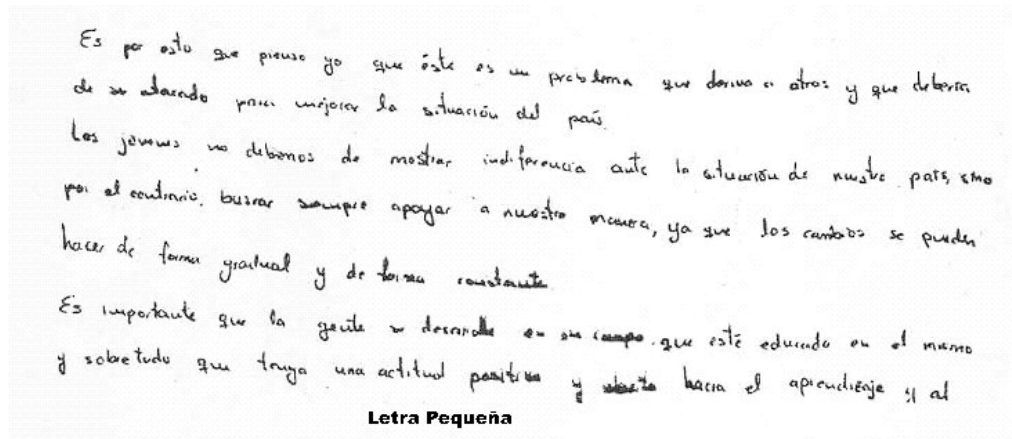 Es por esto que pienso yo que éste es un problema que deriva a otros y que debería
de ser atacado para mejorar la situación del país.
Los jóvenes no debemos de mostrar indiferencia ante la situación de nuestro país, sino
por el contrario, buscar siempre apoyar a nuestra manera, ya que los cambios se pueden
hacer de forma gradual y de forma constante
Es importante que la gente se desarrolle en su campo, que esté educado en el mismo
y sobretodo que tenga una actitud positiva y hacia el aprendizaje y al
Letra Pequeña